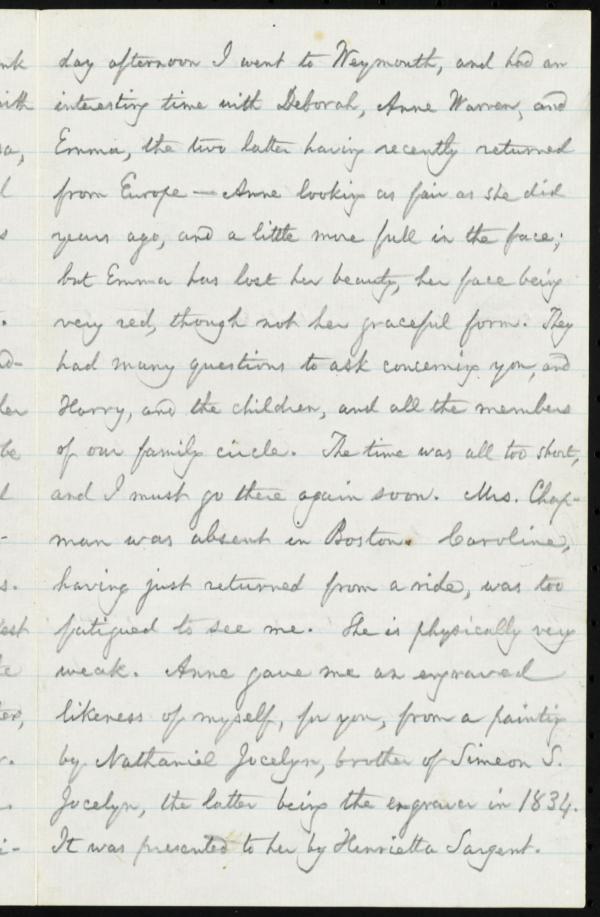 day afternoon I went to Weymouth, and had an
interesting time with Deborah, Anne Warren, and
Emma, the two latter having recently returned
from Europe — Anne looking as fair as she did
years ago, and a little more full in the face;
but Emma has lost her beauty, her face being
very red, though not her graceful form. They
had many questions to ask concerning you, and
Harry, and the children, and all the members
of our family circle. The time was all too short,
and I must go there again soon. Mrs. Chap-
man was absent in Boston. Caroline,
having just returned from a ride, was too
fatigued to see me. She is physically very
weak. Anne gave me an engraved
likeness of myself, for you, from a painting
by Nathaniel Jocelyn, brother of Simeon S.
Jocelyn, the latter being the engraver in 1834.
It was presented to her by Henrietta Sargent.